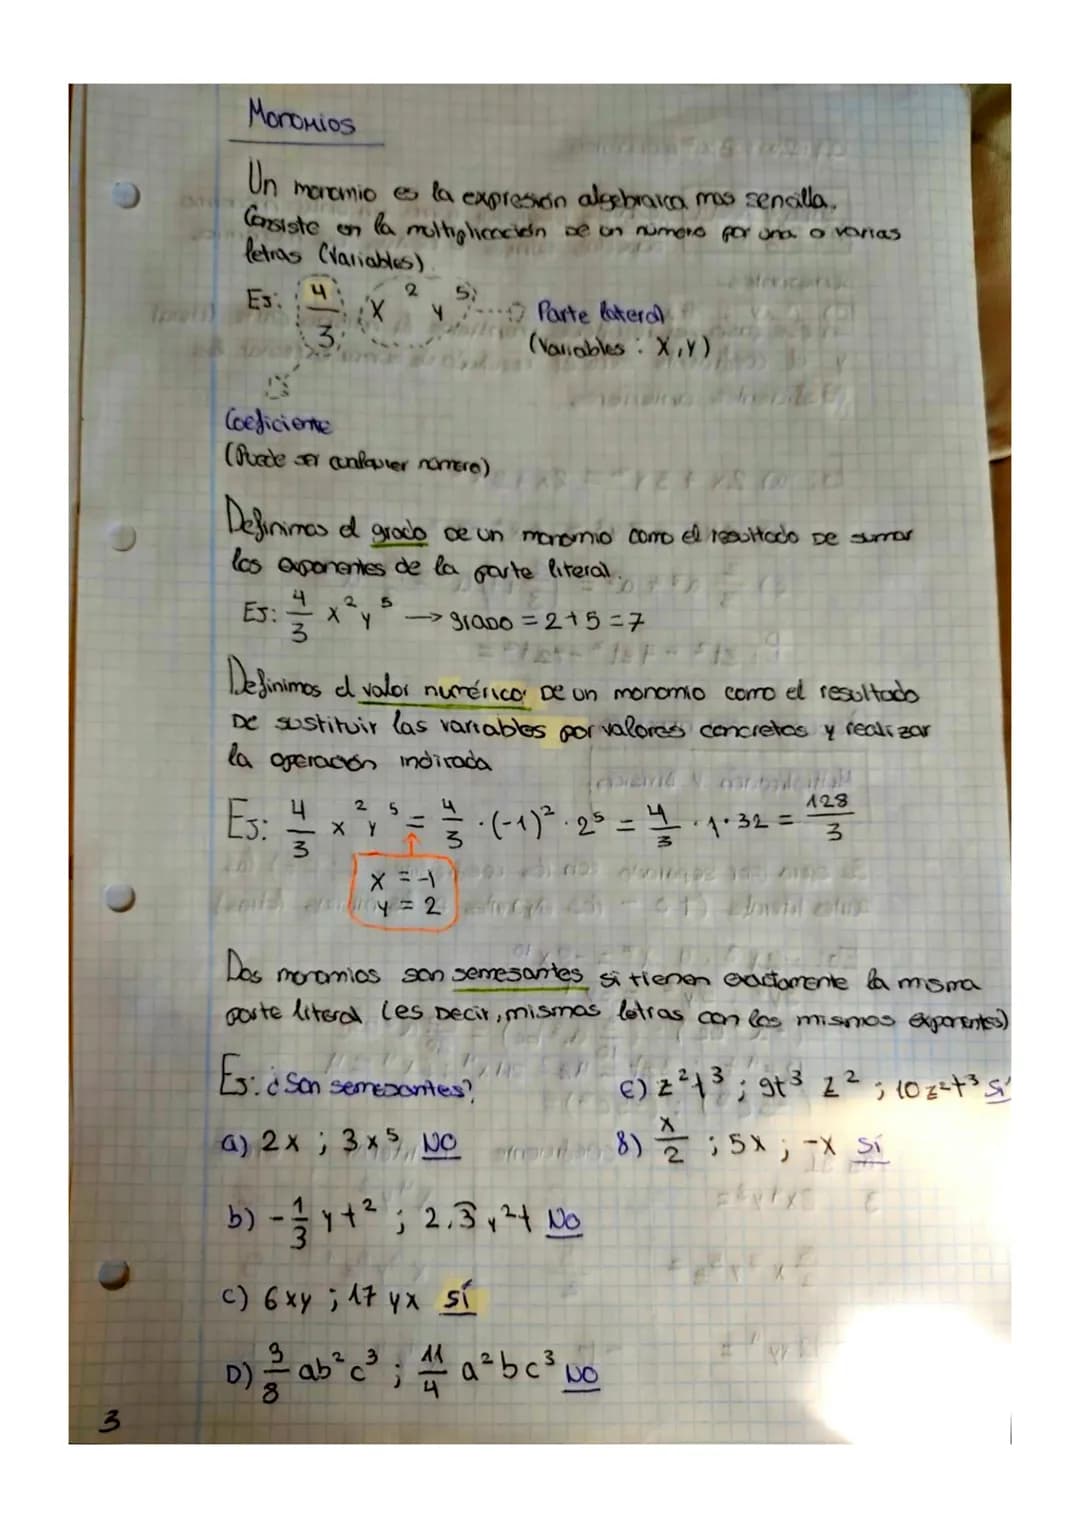 Monomios
Un monomio es la expresión algebraica mas sencilla.
Consiste en la multiplicación de un número por una o varias
letras (Variables).
Ej: 4/3 x² y⁵ Parte lateral
(Variables: X, Y)
Coeficiente
(Puede ser cualquier número)
Definimos el grado de un monomio como el resultado de sumar
los exponentes de la parte literal.
EJ: 4/3 x² y⁵ → grado = 2+5 = 7
Definimos el valor numérico de un monomio como el resultado
de sustituir las variables por valores concretos y realizar
la operación indicada
Ej: 4/3 x² y⁵ = 4/3 · (-1)² · 2⁵ = 4/3 · 1 · 32 = 128/3
x = -1
y = 2
Dos monomios son semejantes si tienen exactamente la misma
parte literal (es decir, mismas letras con los mismos exponentes)
Ej: ¿Son semejantes?
a) 2x ; 3x⁵ NO
b) -1/3 yt² ; 2.3 y²t NO
c) 6xy ; 17 yx sí
D) 9/8 ab²c³ ; 11/4 a²bc³ NO
E) z²t³ ; 9t³ z² ; 10z²t³ Sí
8) x/2 ; 5x ; -x Sí
3